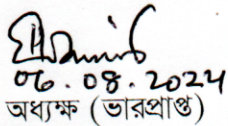 06.08.2024
অধ্যক্ষ (ভারপ্রাপ্ত)